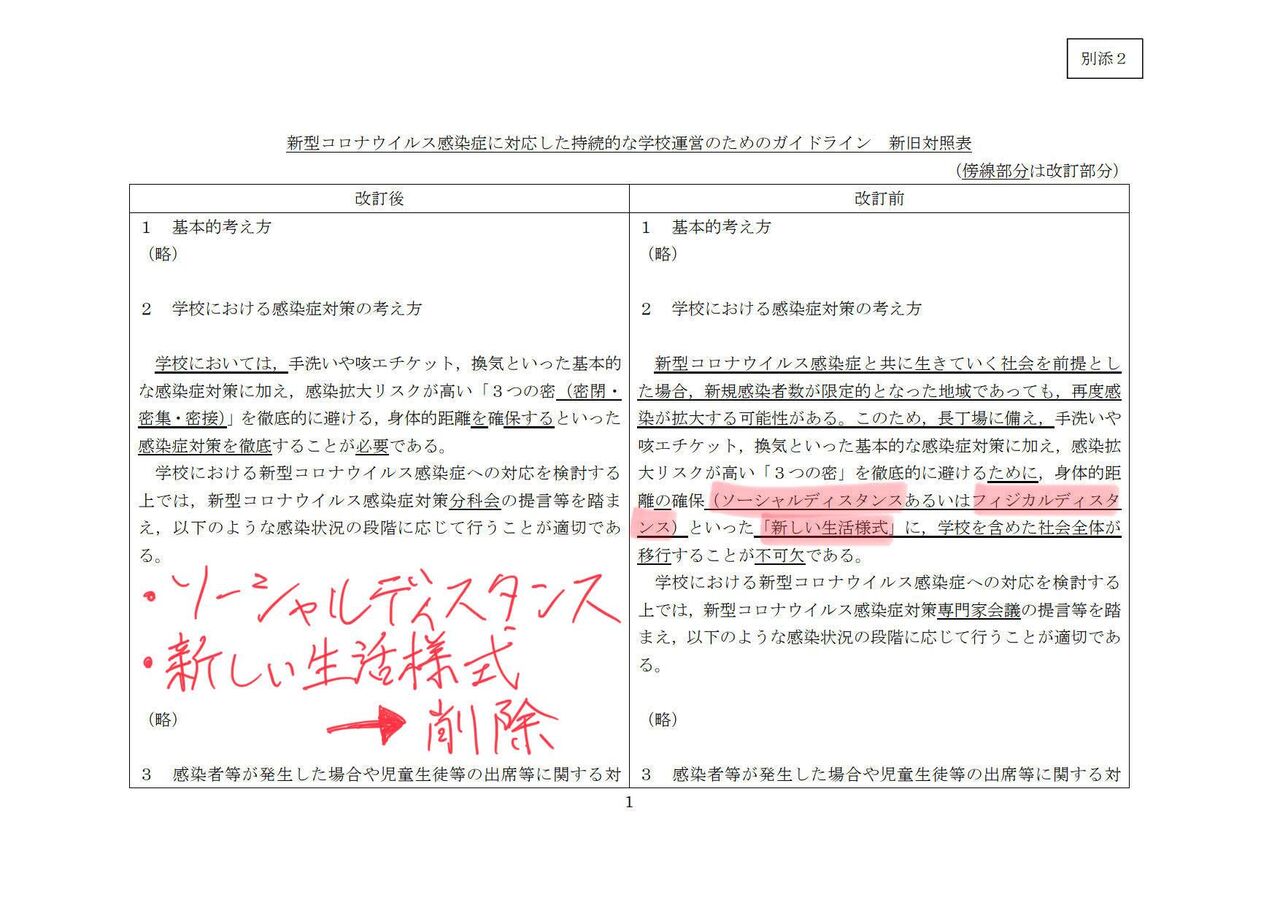 別添２
新型コロナウイルス感染症に対応した持続的な学校運営のためのガイドライン　新旧対照表
（傍線部分は改訂部分）
改訂後
１　基本的考え方
（略）
２　学校における感染症対策の考え方
学校においては，手洗いや咳エチケット，換気といった基本的
な感染症対策に加え，感染拡大リスクが高い「３つの密（密閉・
密集・密接）」を徹底的に避ける，身体的距離を確保するといった
感染症対策を徹底することが必要である。
学校における新型コロナウイルス感染症への対応を検討する
上では，新型コロナウイルス感染症対策分科会の提言等を踏ま
え，以下のような感染状況の段階に応じて行うことが適切であ
る。
・ソーシャルディスタンス
・新しい生活様式
→削除
（略）
３　感染者等が発生した場合や児童生徒等の出席等に関する対
改訂前
１　基本的考え方
（略）
２　学校における感染症対策の考え方
新型コロナウイルス感染症と共に生きていく社会を前提とし
た場合，新規感染者数が限定的となった地域であっても，再度感
染が拡大する可能性がある。このため，長丁場に備え，手洗いや
咳エチケット，換気といった基本的な感染症対策に加え，感染拡
大リスクが高い「３つの密」を徹底的に避けるために，身体的距
離の確保（ソーシャルディスタンスあるいはフィジカルディスタ
ンス）といった「新しい生活様式」に，学校を含めた社会全体が
移行することが不可欠である。
学校における新型コロナウイルス感染症への対応を検討する
上では，新型コロナウイルス感染症対策専門家会議の提言等を踏
まえ，以下のような感染状況の段階に応じて行うことが適切であ
る。
（略）
３　感染者等が発生した場合や児童生徒等の出席等に関する対
1